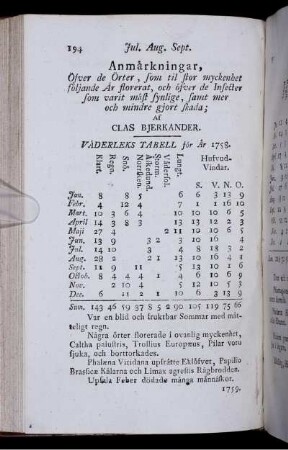 194 Jul. Aug. Sept.
Anmärkningar,
Öfver de Örter, som til stor myckenhet
följande År florerat, och öfver de Insecter
som varit mäst synlige, samt mer
och mindre gjort skada;
Af
CLAS BJERKANDER.
VÄDERLEKS TABELL för År 1758.
Klart. Regn. Snö. Norrsken. Åskedund. Storm. Väderfol. Lungt. Hufvud-
Vindar.
S. V. N. O.
Jan. 8 8 5 6 6 3 13 9
Febr. 4 12 4 7 1 1 16 10
Mart. 10 3 6 4 10 10 10 6 5
April 14 3 8 3 13 13 12 2 3
Maji 27 4 2 11 10 6 5
Jun. 13 9 3 2 3 10 16 4
Jul. 14 10 3 4 8 18 3 2
Aug. 28 2 2 1 13 10 16 4 1
Sept. 11 9 11 5 13 10 1 6
Octob. 8 4 4 4 1 4 6 10 6 9
Nov. 2 10 4 5 12 10 3 5
Dec. 6 11 2 1 10 6 3 13 9
Sum. 143 46 59 37 8 5 2 90 105 119 75 66
Var en blid och fruktbar Sommar med mit-
teligt regn.
Några örter florerade i ovanlig myckenhet,
Caltha palustris, Trollius Europæus, Pilar vora
sjuka, och borttorkades.
Phalæna Viridana upfrätte Eklöfver, Papilio
Brassicæ Kålarna och Limax agrestis Rågbrodden.
Upsala Feber dödade många människor.
1759.